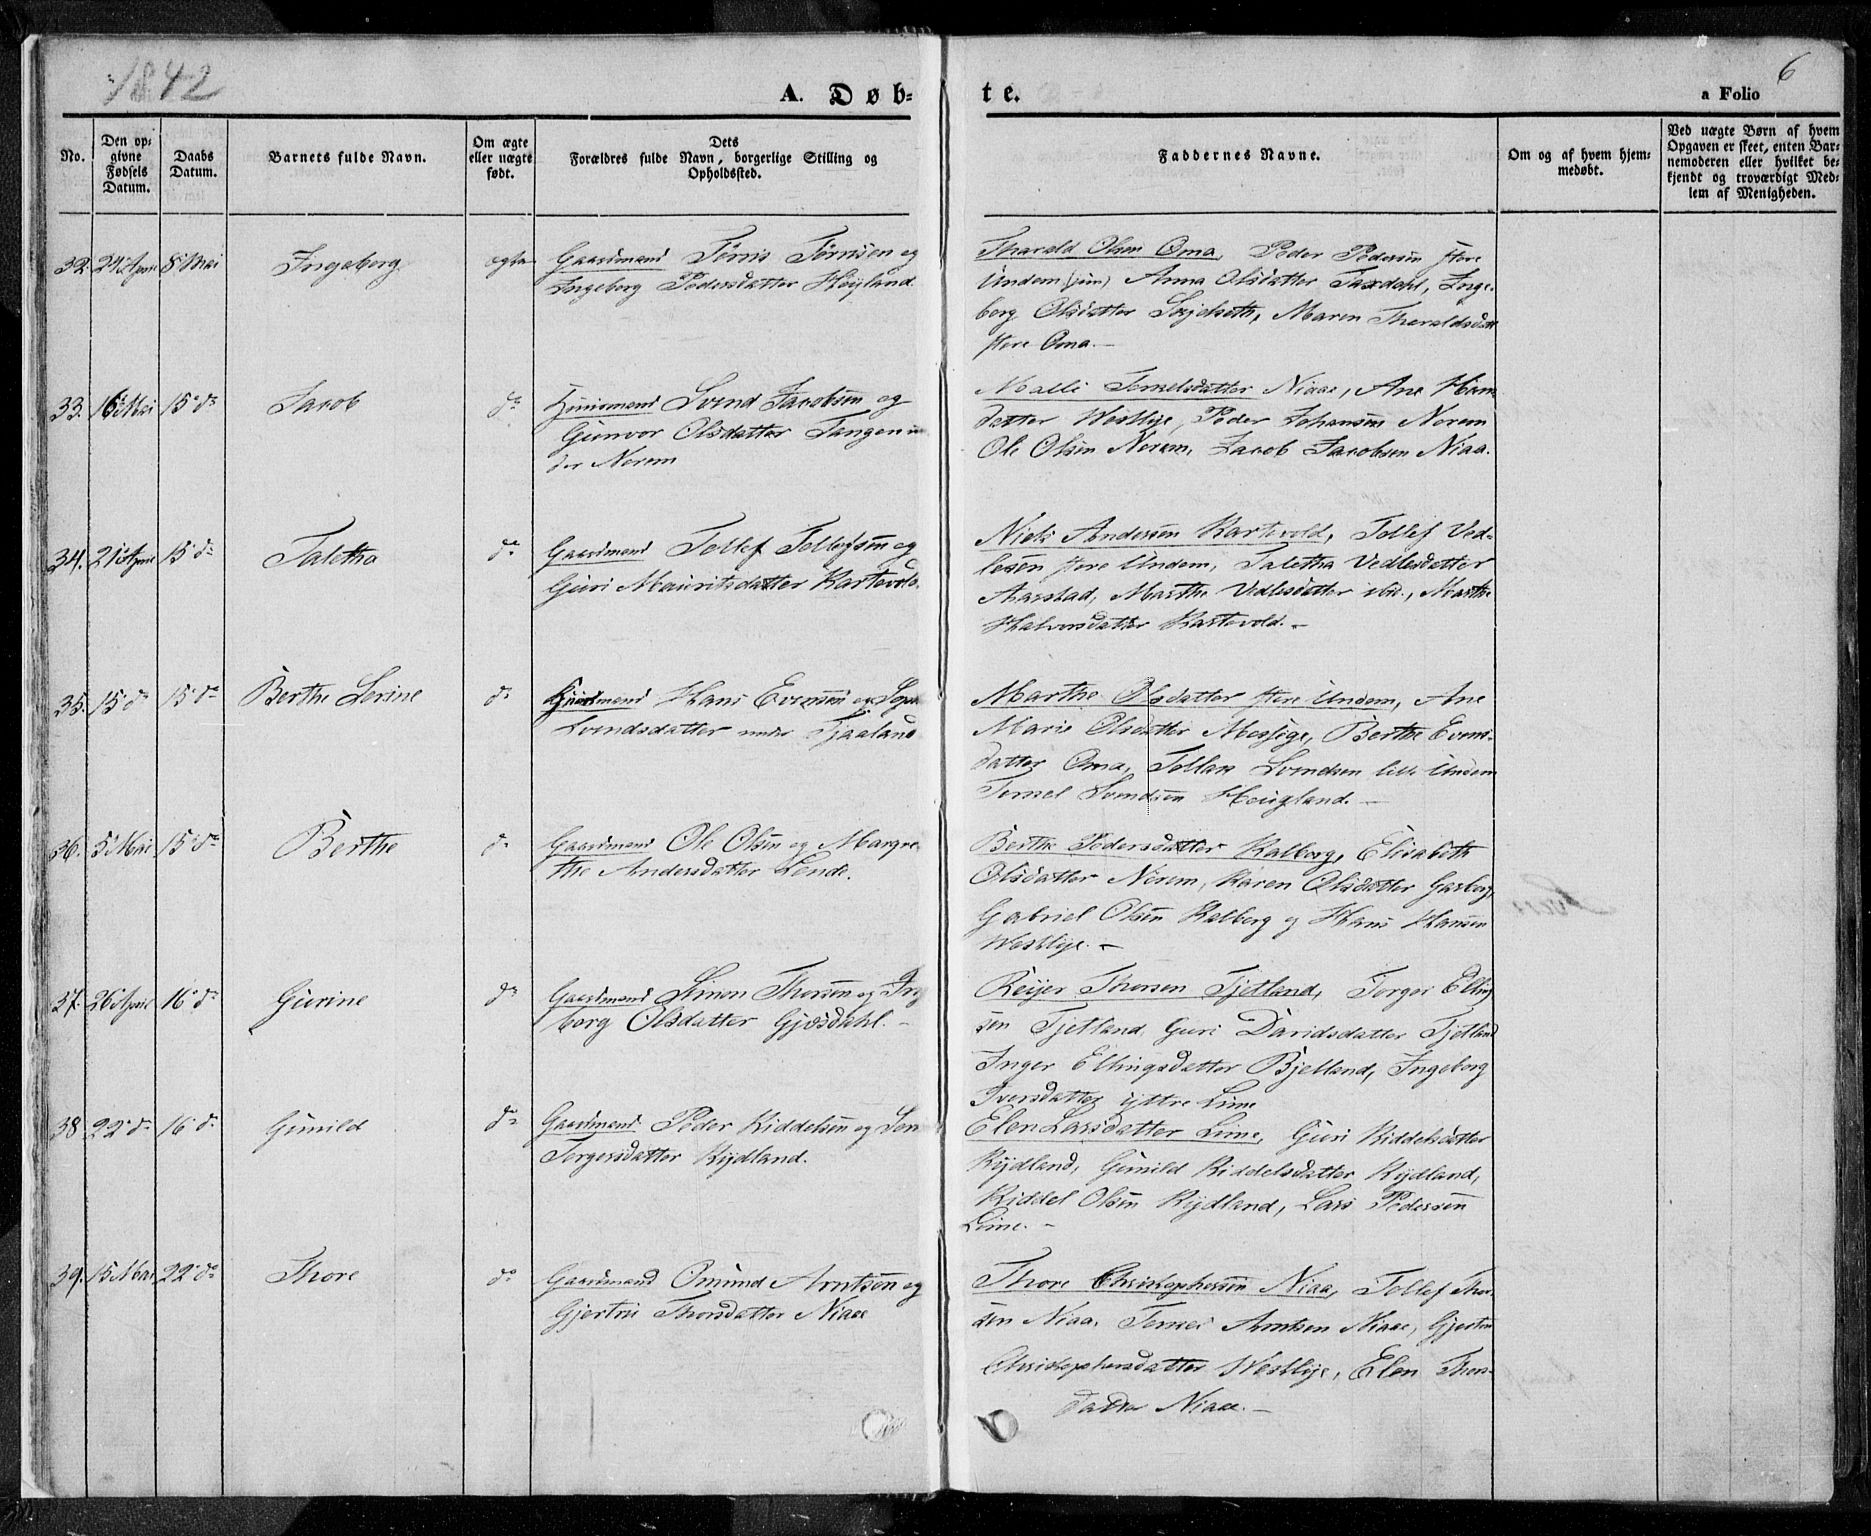 1842
6
A. Døb=
te.
a Folio
No.
Den op=
givne
Fødsels
Datum.
Daabs
Datum.
Barnets fulde Navn.
Om ægte
eller uægte
født.
Dets
Forældres fulde Navn, borgerlige Stilling og
Opholdssted.
Faddernes Navne.
Om og af hvem hjem=
medøbt.
Ved uægte Børn af hvem
Opgaven er skeet, enten Bar=
nemoderen eller hvilket be=
kjendt og troværdigt Med=
lem af Menigheden.
32. 24 April 8 Mai Ingeborg ægte Gaardmand Tørris Tørrisen og
Ingeborg Pedersdatter Høyland.
Tharald Olsen Oma, Peder Pedersen store
Undem (jun) Anna Olsdatter Taxdahl, Inge-
borg Olsdatter Serjelseth, Maren Tharaldsdatt
store Oma.-
33. 16 Mai 15 do Jacob do Huusmand Svend Jacobsen og
Gunvor Olsdatter Tangen un
der Norem
Malli Tormelsdatter Niaae, Ane Hans
datter Westlye, Peder Johansen Norem
Ole Olsen Norem, Jacob Jacobsen Niaa.
34. 21 April 15 do Taletha do Gaardmand Tollef Tollefsen og
Guri Mauritsdatter Kartevold.
Niels Andersen Kartevold, Tollef Ved-
lesen store Undem, Taletha Vedlesdatter
Aarstad, Marthe Vedlesdatter ibd., Marthe
Halvorsdatter Kartevold.-
35. 15 do 15 do Berthe Serine do Huusmand Hans Evensen og
Svendsdatter under Tjaaland
Marthe Olsdatter store Undem, Ane
Marie Olsdatter Mossige, Berthe Evens-
datter Oma, Tollak Svendsen lille Undem
Tormel Svendsen Heugland.-
36. 5 Mai 15 do Berthe do Gaardmand Ole Olsen og Margre
the Andersdatter Lende.
Berthe Pedersdatter Kalberg, Elisabeth
Olsdatter Norem, Karen Olsdatter Garborg,
Gabriel Olsen Kalberg og Hans Hansen
Westlye.-
37. 26 April 16 do Gurine do Gaardmand Simon Thorsen og Ing
borg Olsdatter Gjesdahl.-
Reijer Thorsen Tjetland, Torger Elling
sen Tjetland, Guri Davidsdatter Tjetland
Inger Ellingsdatter Bjelland, Ingeborg
Iversdatter yttre Lime
38 22 do 16 do Gunild do Gaardmand Peder Kiddelsen og
Torgersdatter Rydland.
Elen Larsdatter Lime, Guri Kiddelsdatter
Rydland, Gunild Kiddelsdatter Rydland,
Kiddel Olsen Rydland, Lars Pedersen
Lime.-
39. 15 Mai 22 do Thore do Gaardmand Omund Arntsen og
Gjertru Thorsdatter Niaae
Thore Christophersen Niaa, Tollef Thor-
sen Niaa. Tormel Arntsen Niaae, Gjertru
Christophersdatter Westlye, Elen Thors-
datter Niaae.-